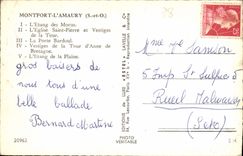 MONTFORT-L'AMAURY (S.-et-O.)
I - L'Etang des Mares
II - L'Eglise Saint-Pierre et Vestiges
de la Tour.
III - La Porte Bardoul.
IV - Vestiges de la Tour d'Anne de
Bretagne.
V - L'Etang de la Plaine.
gros baisers de
nous tous d'une
belle ballade
Bernard Martine
20963
PHOTO
VERITABLE
Mme Vve Sanson
5 Imp St Sulpice 5
Rueil Malmaison
(S et O)